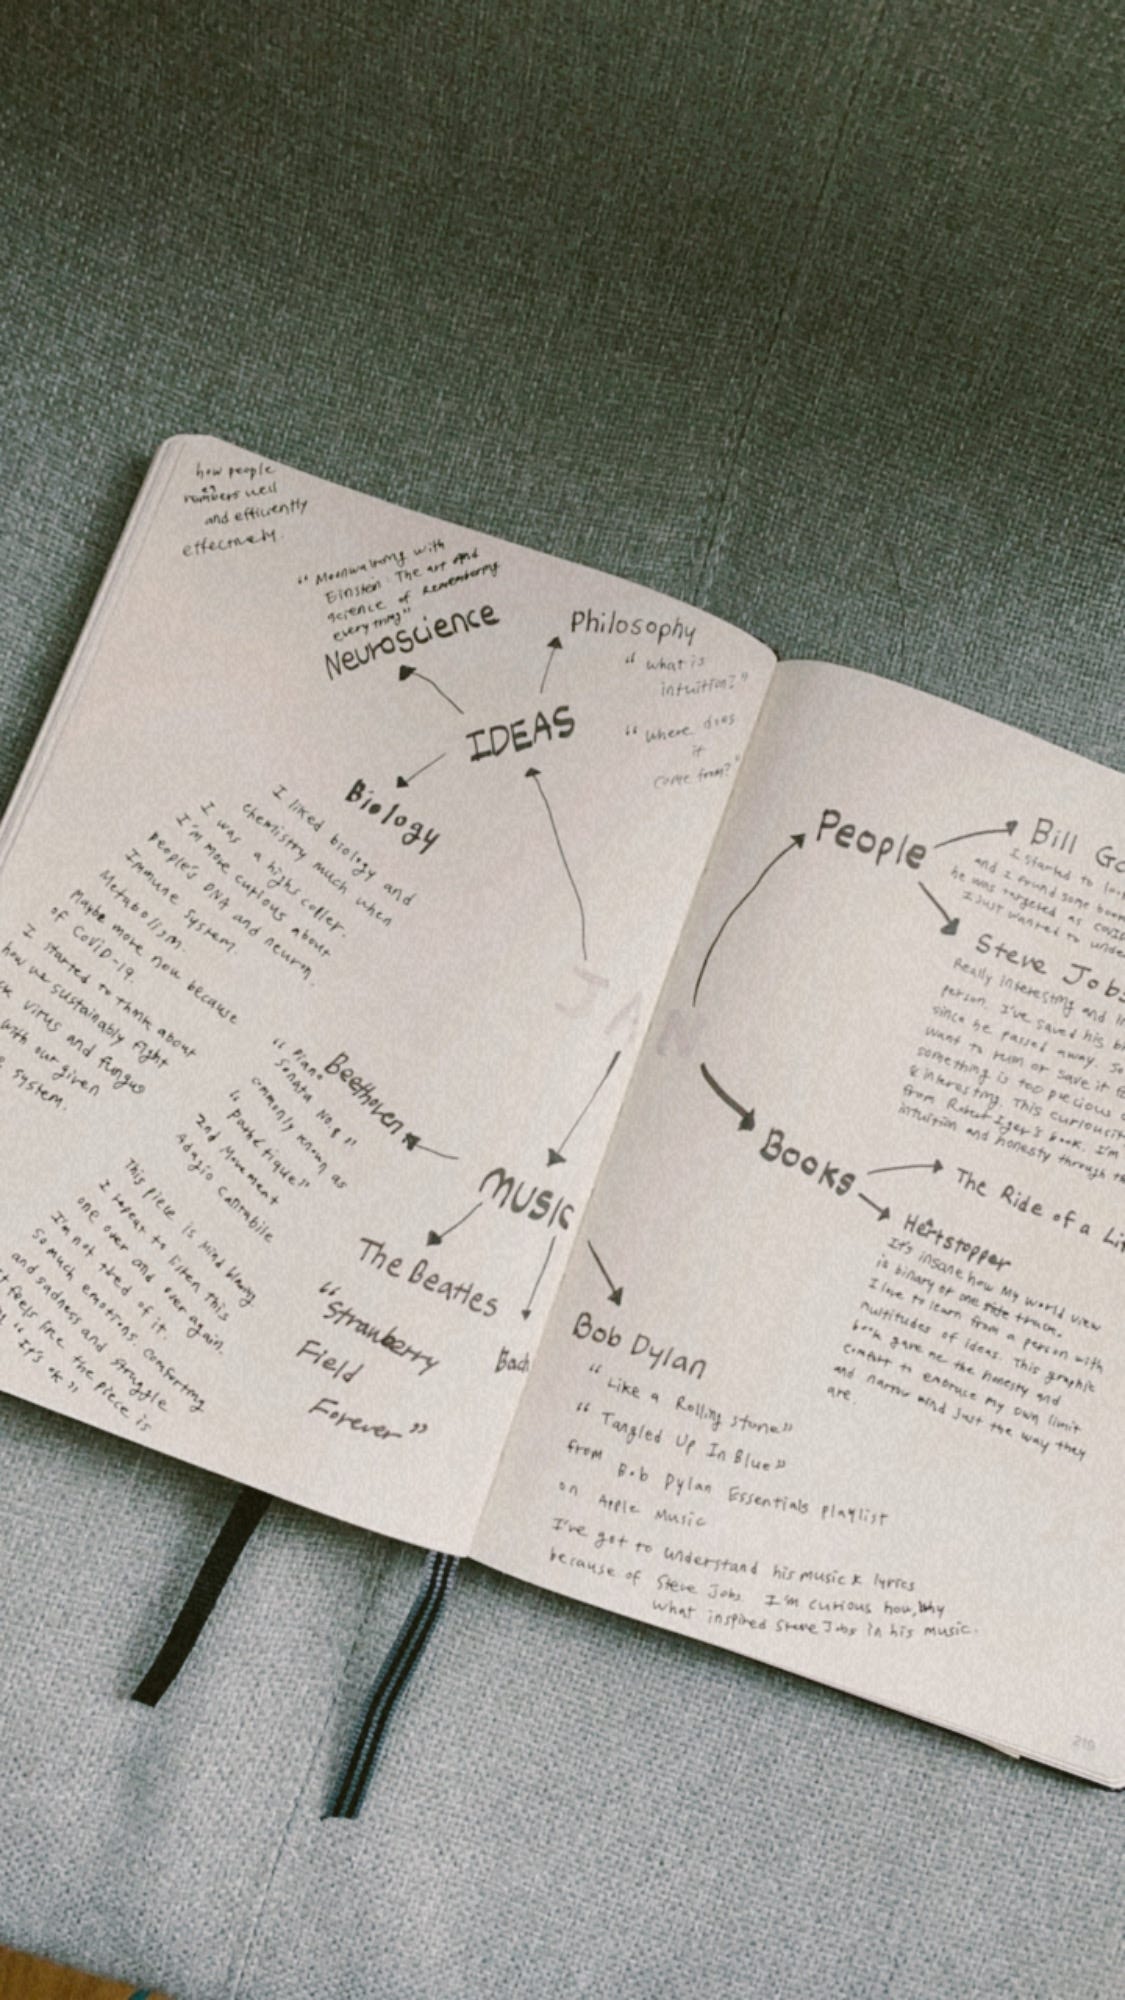 how people
numbers well
and efficiently
effectively.
"Moonwalking with
Einstein The art and
science of Remembering
everything"
Neuroscience
Philosophy
"what is
intuition?"
"Where does
it
come from?"
IDEAS
Biology
I liked biology and
chemistry much when
I was a highscooler.
I'm more curious about
people's DNA and neuron.
Immune system.
Metabolism.
Maybe more now because
of CoviD-19.
I started to think about
how we sustainably fight
virus and fungus
with our given
system.
JAN
Beethoven
"Piano
Sonata No.8"
commonly known as
"Pathétique"
2nd Movement
Adagio Cantabile
This piece is mind blowing
I repeat to listen this
one over and over again.
I'm not tired of it.
So much emotions. Comforting
and sadness and struggle
feels like the piece is
"It's ok"
MUSIC
The Beatles
"Strawberry
Field
Forever"
Bach
Bob Dylan
"Like a Rolling stone"
"Tangled Up In Blue"
from Bob Dylan Essentials playlist
on Apple Music
I've got to understand his music & lyrics
because of Steve Jobs. I'm curious how, why
what inspired Steve Jobs in his music.
People
Bill
I started to
and I found some
he was targeted as
I just wanted to
Steve Jobs
Really interesting and
person. I've saved his
since he passed away. So
want to ruin or save it
something is too precious
& interesting. This
from Robert Iger's book. I'm
intuition and honesty through
Books
The Ride of a
Hertstopper
It's insane how My world view
is binary or one side track.
I love to learn from a person with
multitudes of ideas. This graphic
book gave me the honesty and
comfort to embrace my own limit
and narrow mind just the way they
are.
219